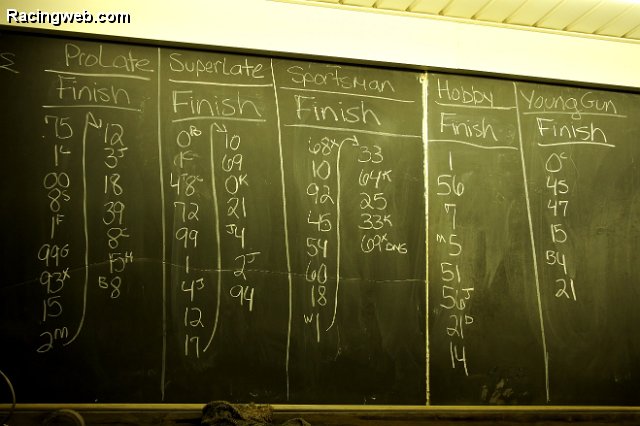 Racingweb.com
ProLate
Finish
75
1L
00
8S
1F
99G
93X
15
2M
12
3J
18
39
8C
15H
B8
Superlate
Finish
0B
48S
72
99
1
4J
12
17
10
69
0K
21
J4
2J
94
Sportsman
Finish
68X
10
92
45
54
60
18
W1
33
64K
25
33K
69X DNS
Hobby
Finish
1
56
7
M5
51
56J
21D
14
YoungGun
Finish
0C
45
47
15
B4
21